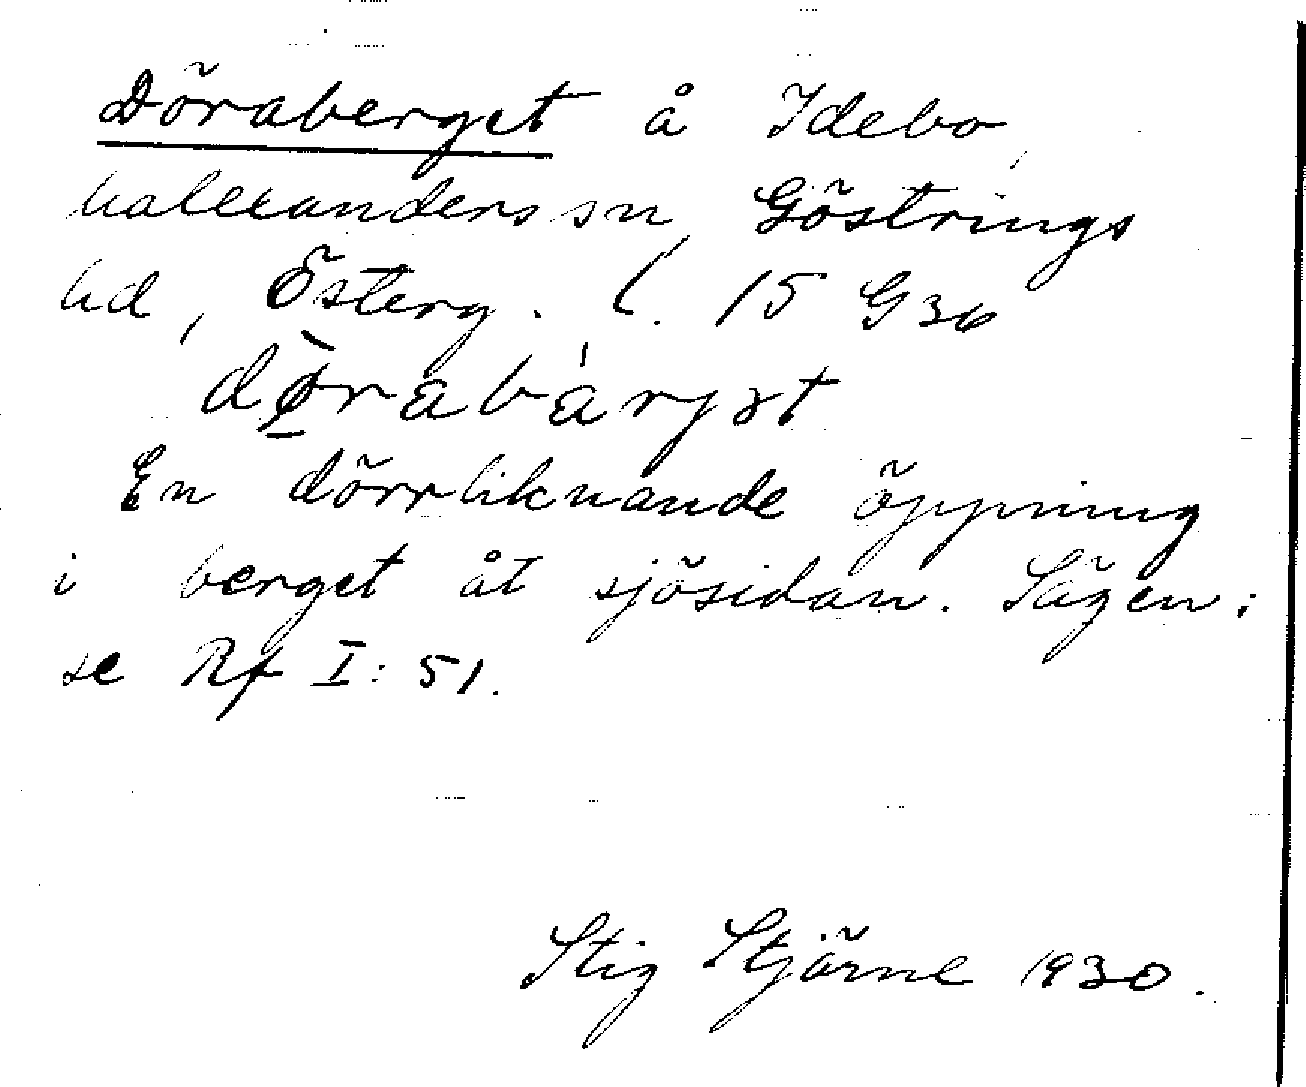 Döraberget å Idebo,
Malexanders sn, Göstrings
hd, Österg. l. 15 G 36
dørabárjət
En dörrliknande öppning
i berget åt sjösidan. Sägen;
se Rf I: 51.
Stig Stjärne 1930.